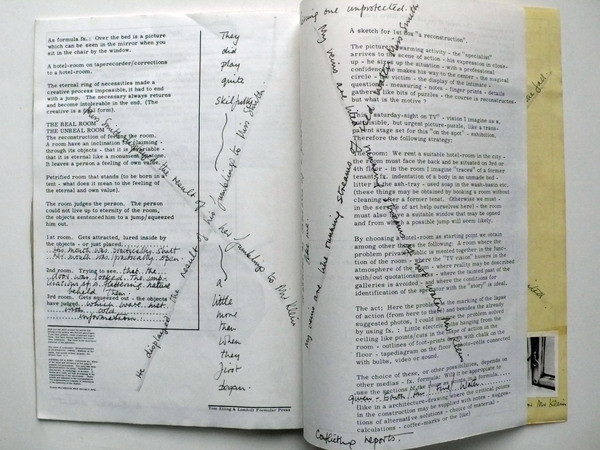 As formula fx. : Over the bed is a picture
which can be seen in the mirror when you
sit in the chair by the window.
A hotel-room on taperecorder/corrections
to a hotel-room.
The eternal ring of necessities made a
creative process impossible, it had to end
with a jump. The necessary always returns
and become intolerable in the end. (The
creative is a form).
THE REAL ROOM
THE UNREAL ROOM
The reconstruction of the room.
A room have an inclination for claiming -
through its objects - that it is invariable -
that it is eternal like a monument
It leaves a person a feeling of
Petrified room that stands (to be born in a
tent - what does it mean to the feeling of
the eternal and own value).
The room judges the person. The person
could not live up to eternity of the room,
the objects sentenced him to a jump/squeezed
him out.
1st room. Gets attracted, lured inside by
the objects - or just placed
His mouth was practically shut
His mouth was practically open.
2nd room. Trying to see that the
door was locked. The
3rd room. Gets squeezed out - the objects
have judged, which were met
with cold
information.
They
did
play
quite
skilfully
a
little
more
than
when
they
first
began.
He displayed the results of his fumblings to Miss Smith
Tom Elling & Lomholt Formular Press
being one unprotected.
A sketch for 1st box "a reconstruction".
The picture: swarming activity - the "specialist"
arrives to the scene of action - his expression in close-
up - he sizes up the situation - with a professional
confidence he makes his way to the center - the magical
circle - the victim - the display of the intimate -
questions - measuring - notes - finger prints - details
gathered like bits of puzzles - the course is reconstructed-
but what is the motive ?
This "saturday-night on TV" - vision I imagine as a,
impossible, but urgent picture-puzzle, like a trans-
parent stage set for this "on the spot" - exhibition.
Therefore the following strategy:
The room: We rent a suitable hotel-room in the city -
the room must face the back and be situated on 3rd or
4th floor - in the room I imagine "traces" of a former
tenant, fx. indentation of a body in an unmade bed -
litter in the ash-tray - used soap in the wash-basin etc.
(these things may be obtained by booking a room without
cleaning after a former tenant. Otherwise we must -
in the service of art help ourselves here) - the room
must also have a suitable window that may be opened
and from which a possible jump will seem likely.
By choosing a hotel-room as starting point we obtain
among other things the following: A room where the
problem private/public is mented together in the func-
tion of the room - where the "TV vision" hovers in the
atmosphere of the room - where reality may be described
with/out quotationmarks - where the tainted part of the
galleries is avoided - and where the conditions for
identification of the spectator with the "story" is ideal.
The act: Here the problem is the marking of the lapse
of action (from here to there) and besides the already
suggested photos, I could imagine the problem solved
by using fx. : Little electric bulbs hanging from the
ceiling like points/cuts in the lapse of action in the
room - outlines of foot-prints drawn with chalk on the
floor - tapediagram on the floor - photo-cells connected
with bulbs, video or sound.
The choice of these, or other possibilities, depends on
other medias - fx. formula: Will it be appropriate to
use the sections of the room as points in a formula
(like in a architecture-drawing where the critical points
in the construction may be supplied with notes - sugges-
tions of alternative solutions - choice of material -
calculations - coffee-marks or the like)
Conflicting reports.
Mrs Klein